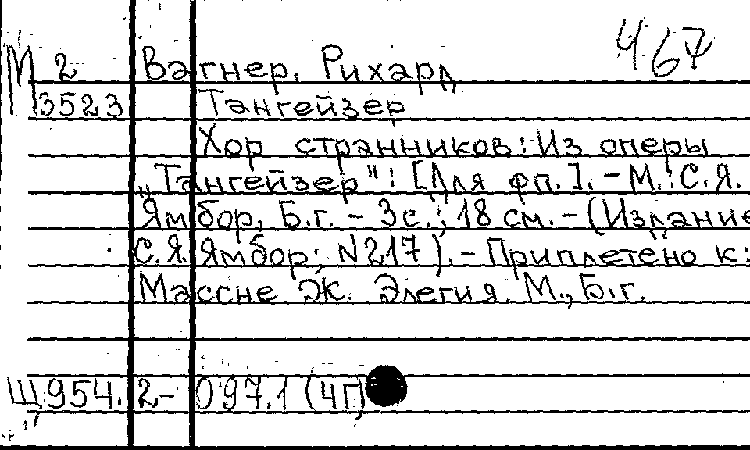 467
М 2 Вагнер, Рихард
3523 Тангейзер
Хор странников: Из оперы
„Тангейзер": [Для фп.]. - М.: С.Я.
Ямбор, Б.г. - 3с.; 18 см. - (Издание
С.Я.Ямбор; N217). - Приплетено к:
Массне Ж. Элегия. М., Б.г.
Щ954.2-097.1 (4Г)